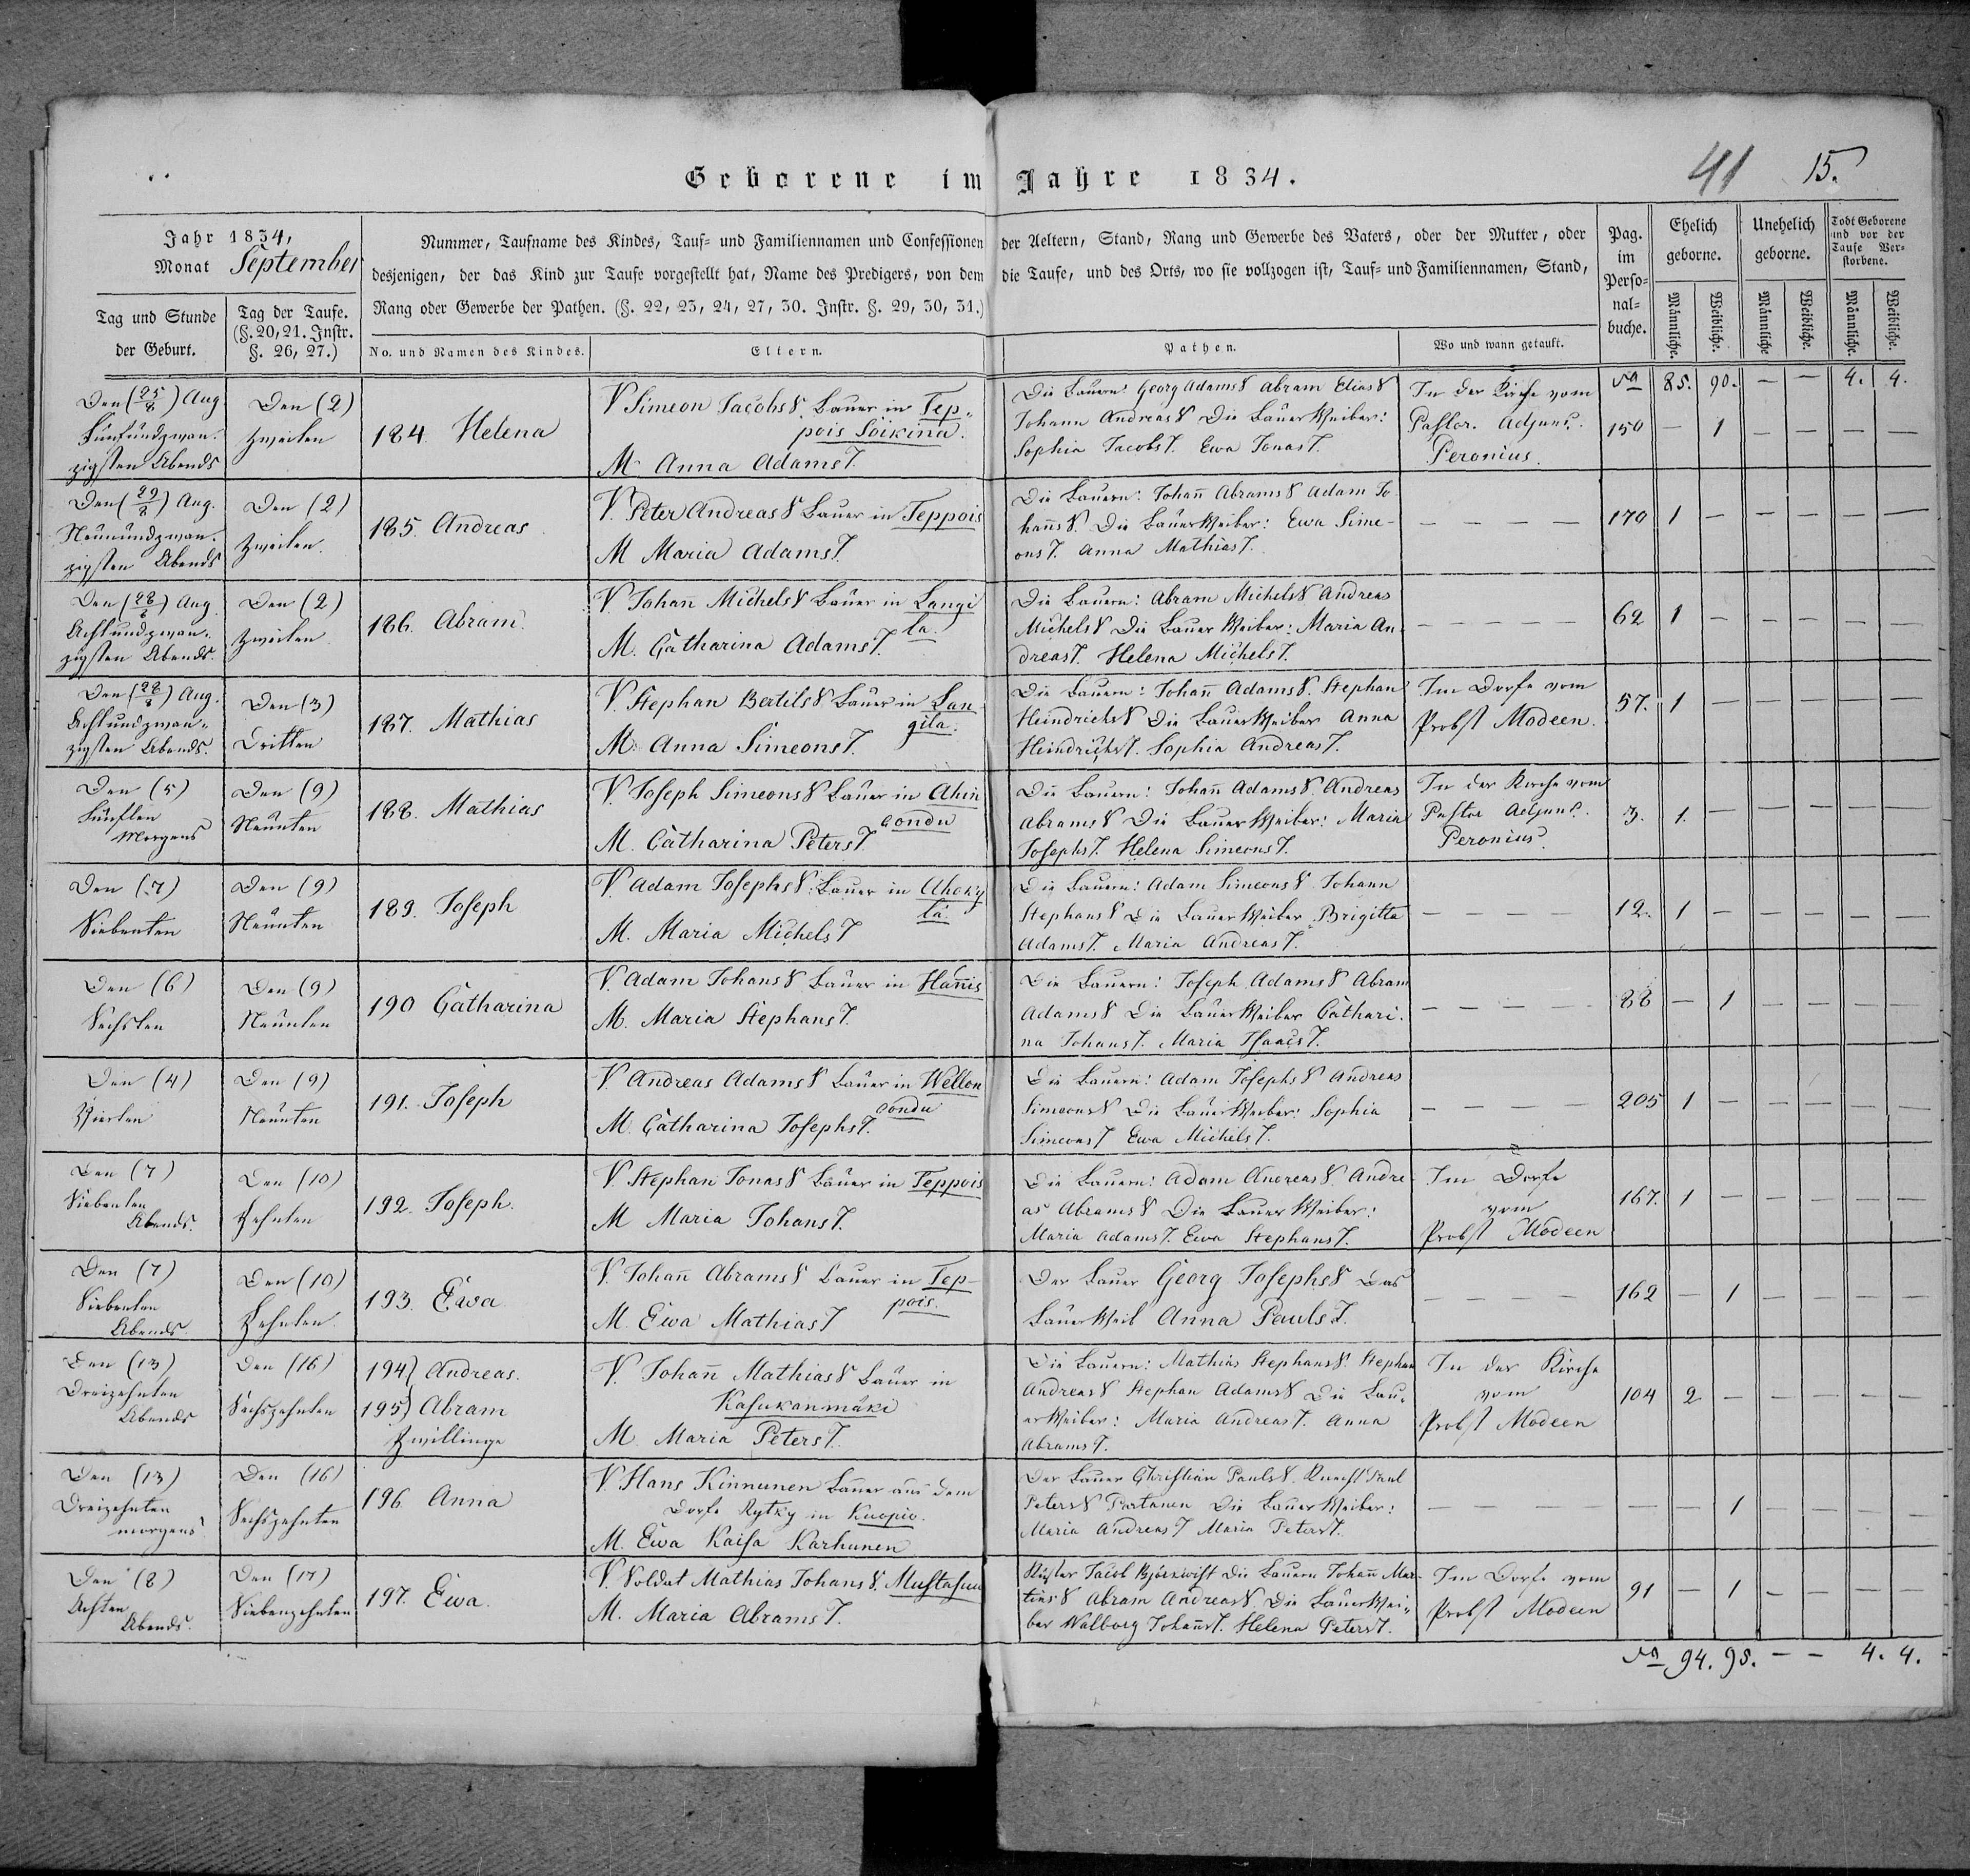 41 15.
Geborene im Jahre 1834.
Jahr 1834,
Monat September
Tag und Stunde
der Geburt.
Tag der Taufe.
(§. 20, 21. Instr.
§. 26, 27.)
Nummer, Taufname des Kindes, Tauf- und Familiennamen und Confessionen der Aeltern, Stand, Rang und Gewerbe des Vaters, oder der Mutter, oder
desjenigen, der das Kind zur Taufe vorgestellt hat, Name des Predigers, von dem die Taufe, und des Orts, wo sie vollzogen ist, Tauf- und Familiennamen, Stand,
Rang oder Gewerbe der Pathen. (§. 22, 23, 24, 27, 30. Instr. §. 29, 30, 31.)
No. und Namen des Kindes.
Eltern.
Pathen.
Wo und wann getauft.
Pag.
im
Perso-
nal-
buche.
Ehelich
geborne.
Unehelich
geborne.
Todt Geborene
und vor der
Taufe Ver-
storbene.
Männliche.
Weibliche.
Männliche
Weibliche.
Männliche.
Weibliche.
85. 90. — — 4. 4.
Den (25/8) Aug
Fünfundzwan-
zigsten Abends
Den (2)
Zweiten
184. Helena
V. Simeon Jacobs S. Bauer in Tep-
pois Soikina.
M. Anna Adams T.
Die Bauern: Georg Adams S Abram Elias S
Johann Andreas S Die Bauer Weiber:
Sophia Jacobs T. Ewa Jonas T.
In der Kirche vom
Pastor. Adjunct.
Peronius.
150 — 1 — — — —
Den (29/8) Aug.
Neunundzwan-
zigsten Abends
Den (2)
Zweiten.
185. Andreas
V. Peter Andreas S Bauer in Teppois
M Maria Adams T.
Die Bauern: Johann Abrams S Adam Jo
hanns S. Die Bauer Weiber: Ewa Sime-
ons T. Anna Mathias T.
— — — —
170 1 — — — — —
Den (28/8) Aug
Achtundzwan-
zigsten Abends.
Den (2)
Zweiten
186. Abram.
V. Johann Michels S Bauer in Langi
la.
M. Catharina Adams T.
Die Bauern: Abram Michels S Andreas
Michels S Die Bauer Weiber: Maria An-
dreas T. Helena Michels T.
— — — — —
62 1 — — — — —
Den (28/8) Aug.
Achtundzwan-
zigsten Abends.
Den (3)
Dritten
187. Mathias
V. Stephan Bertils S Bauer in Lan
gila.
M. Anna Simeons T.
Die Bauern: Johann Adams S. Stephan
Heindrichs S Die Bauer Weiber Anna
Heindrichs T. Sophia Andreas T.
Im Dorfe vom
Probst Modeen.
57. 1 — — — — —
Den (5)
Fünften
Morgens
Den (9)
Neunten
188. Mathias
V. Joseph Simeons S Bauer in Ahin
condu
M. Catharina Peters T.
Die Bauern: Johann Adams S. Andreas
Abrams S Die Bauer Weiber: Maria
Josephs T. Helena Simeons T.
In der Kirche vom
Pastor Adjunct.
Peronius.
3. 1. — — — — —
Den (7)
Siebenten
Den (9)
Neunten
189. Joseph
V. Adam Josephs S. Bauer in Ahoky
la
M. Maria Michels T
Die Bauern: Adam Simeons S Johann
Stephans S Die Bauer Weiber Brigitta
Adams T. Maria Andreas T.
— — — —
12. 1 — — — — —
Den (6)
Sechsten
Den (9)
Neunten
190 Catharina
V. Adam Johans S Bauer in Hannis
M. Maria Stephans T.
Die Bauern: Joseph Adams S Abram
Adams S Die Bauer Weiber Cathari-
na Johans T. Maria Isaacs T.
— — — —
88 — 1 — — — —
Den (4)
Vierten
Den (9)
Neunten
191. Joseph
V. Andreas Adams S Bauer in Wellon
condu
M. Catharina Josephs T.
Die Bauern: Adam Josephs S Andreas
Simeons S Die Bauer Weiber: Sophia
Simeons T Ewa Michels T.
— — — —
205 1 — — — — —
Den (7)
Siebenten
Abends.
Den (10)
Zehnten
192. Joseph.
V. Stephan Jonas S Bauer in Teppois
M Maria Johans T.
Die Bauern: Adam Andreas S. Andre
as Abrams S Die Bauer Weiber:
Maria Adams T. Ewa Stephans T.
Im Dorfe
vom
Probst Modeen
167. 1 — — — — —
Den (7)
Siebenten
Abends
Den (10)
Zehnten.
193. Ewa
V. Johann Abrams S Bauer in Tep-
pois.
M. Ewa Mathias T
Der Bauer Georg Josephs S Das
Bauer Weib Anna Pauls T.
— — — —
162 — 1 — — — —
Den (13)
Dreizehnten
Abends
Den (16)
Sechszehnten
194) Andreas.
195) Abram
Zwillinge
V. Johann Mathias S Bauer in
Kasukanmäki
M. Maria Peters T.
Die Bauern: Mathias Stephans S. Stephan
Andreas S Stephan Adams S Die Bau-
er Weiber: Maria Andreas T. Anna
Abrams T.
In der Kirche
vom
Probst Modeen
104 2 — — — — —
Den (13)
Dreizehnten
morgens
Den (16)
Sechszehnten
196. Anna
V. Hans Kinnunen Bauer aus dem
Dorfe Rytky in Kuopio.
M. Ewa Kaisa Karhunen
Der Bauer Christian Pauls S. Knecht Paul
Peters S Partanen Die Bauer Weiber:
Maria Andreas T Maria Peters T.
— — — — — — 1 — — — —
Den (8)
Achten
Abends.
Den (17)
Siebenzehnten
197. Ewa.
V. Soldat Mathias Johans S. Mustasuu
M. Maria Abrams T.
Küster Jacob Björkwist Die Bauern Johann Mar-
tins S Abram Andreas S. Die Bauer Wei-
ber Walborg Johanns T. Helena Peters T.
Im Dorfe vom
Probst Modeen
91 — 1 — — — —
94. 95. — — 4. 4.